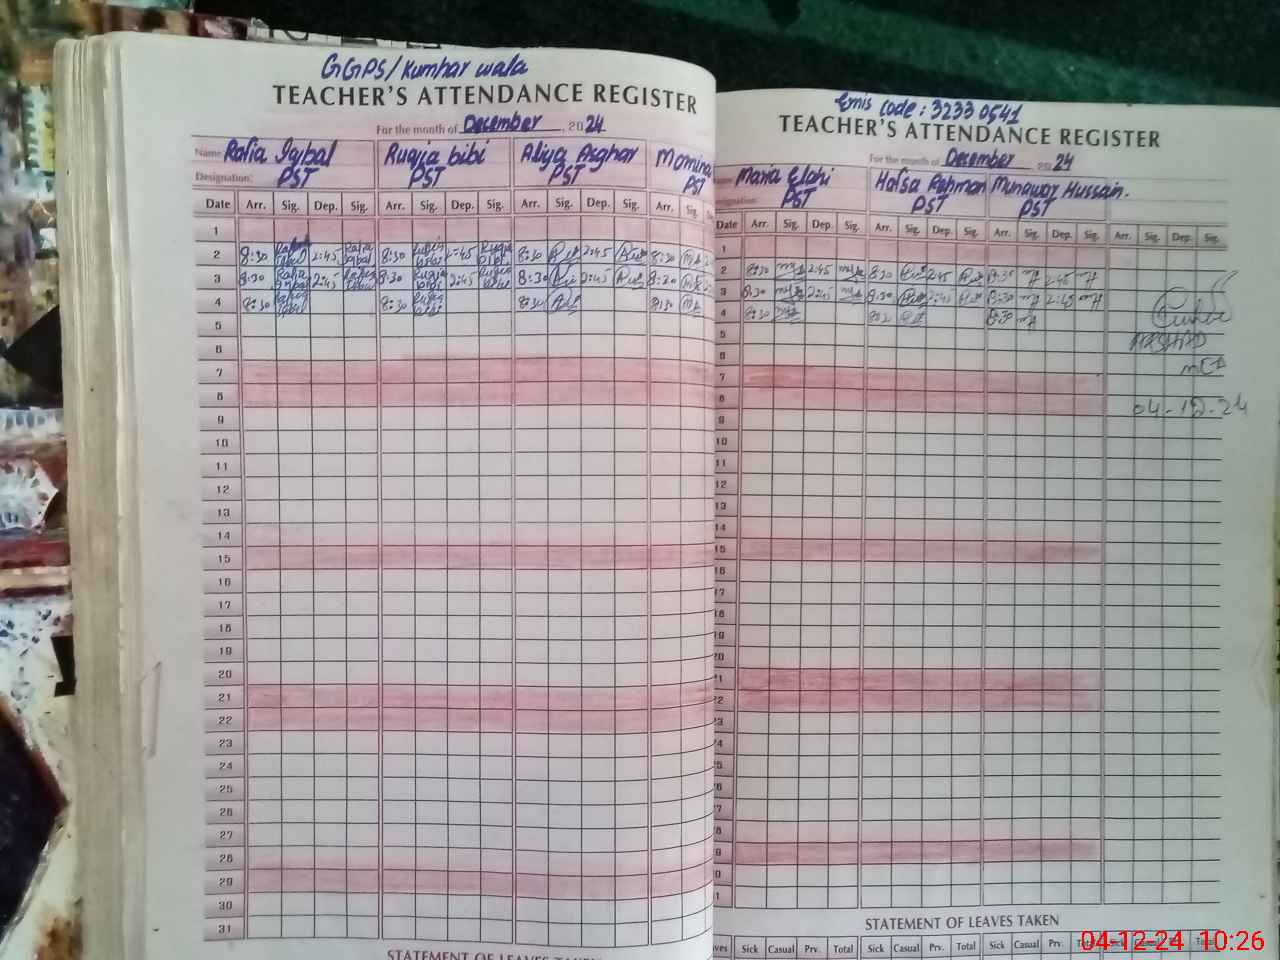 GGPS/Kumhar wala
TEACHER'S ATTENDANCE REGISTER
For the month of December, 2024
Name Rafia Iqbal Ruqia bibi Aliya Asghar Momina
Designation: PST PST PST PST
Date Arr. Sig. Dep. Sig. Arr. Sig. Dep. Sig. Arr. Sig. Dep. Sig. Arr. Sig.
1
2 8:30 2:45 Rafia Iqbal 8:30 2:45 Ruqia bibi 8:30 2:45 8:30
3 8:30 Rafia Iqbal 2:45 8:30 Ruqia bibi 2:45 8:30 2:45 8:30
4 8:30 8:30 Ruqia bibi 8:30 8:30
5
6
7
8
9
10
11
12
13
14
15
16
17
18
19
20
21
22
23
24
25
26
27
28
29
30
31
STATEMENT OF LEAVES TAKEN
Emis code: 32330541
TEACHER'S ATTENDANCE REGISTER
For the month of December 2024
Maria Elahi Hafsa Rehman Munawar Hussain.
Designation: PST PST PST
Date Arr. Sig. Dep. Sig. Arr. Sig. Dep. Sig. Arr. Sig. Dep. Sig. Arr. Sig. Dep. Sig.
1
2 8:30 2:45 8:30 2:45 8:30 2:45
3 8:30 2:45 8:30 2:45 8:30 2:45
4 8:30 8:30
5 ARSHAD
6
7
8
9 04-12-24
10
11
12
13
14
15
16
17
18
19
20
21
22
23
24
25
26
27
28
29
30
31
STATEMENT OF LEAVES TAKEN
Sick Casual Prv. Total Sick Casual Prv. Total Sick Casual Prv. Total
04-12-24 10:26